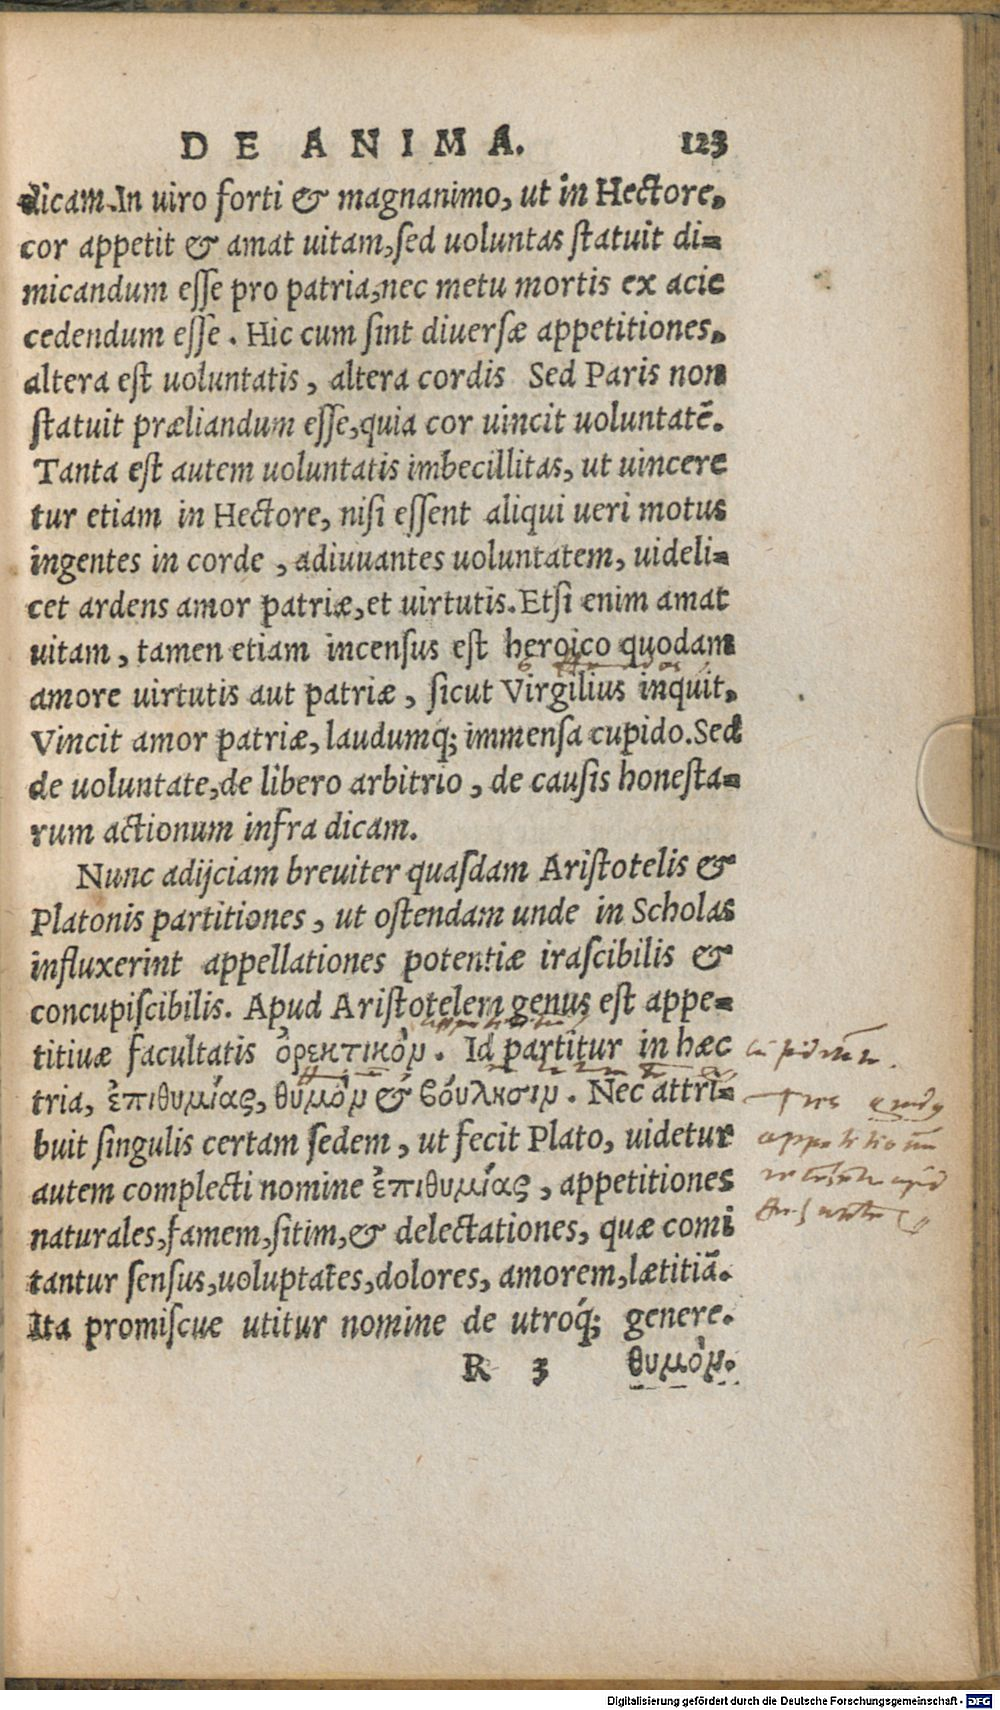 DE ANIMA. 123
dicam. In uiro forti & magnanimo, ut in Hectore,
cor appetit & amat uitam, sed uoluntas statuit di-
micandum esse pro patria, nec metu mortis ex acie
cedendum esse. Hic cum sint diuersæ appetitiones,
altera est uoluntatis, altera cordis Sed Paris non
statuit præliandum esse, quia cor uincit uoluntatē.
Tanta est autem uoluntatis imbecillitas, ut uincere
tur etiam in Hectore, nisi essent aliqui ueri motus
ingentes in corde, adiuuantes uoluntatem, uideli-
cet ardens amor patriæ, et uirtutis. Etsi enim amat
uitam, tamen etiam incensus est heroico quodam
amore uirtutis aut patriæ, sicut Virgilius inquit,
Vincit amor patriæ, laudumq; immensa cupido. Sed
de uoluntate, de libero arbitrio, de causis honesta-
rum actionum infra dicam.
Nunc adijciam breuiter quasdam Aristotelis &
Platonis partitiones, ut ostendam unde in Scholas
influxerint appellationes potentiæ irascibilis &
concupiscibilis. Apud Aristotelem genus est appe-
titiuæ facultatis ὀρεκτικὸν. Id partitur in hæc
tria, ἐπιθυμίας, θυμὸν & βούλησιν. Nec attri-
buit singulis certam sedem, ut fecit Plato, uidetur
autem complecti nomine ἐπιθυμίας, appetitiones
naturales, famem, sitim, & delectationes, quæ comi
tantur sensus, uoluptates, dolores, amorem, lætitiā.
Ita promiscue utitur nomine de utroq́; genere.
R 3 θυμὸν.